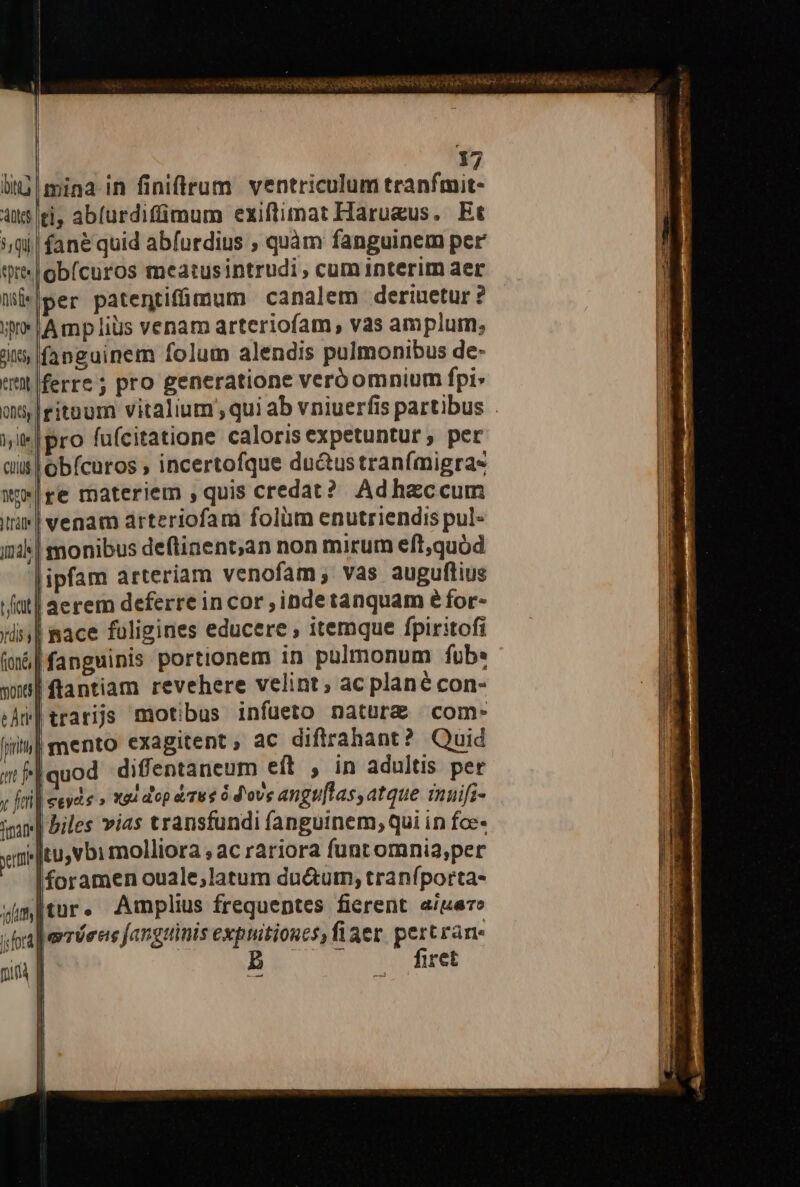 17
mina in finiſtrum ventriculum tranſmit-
ti, abſurdiſſimum exiſtimat Haruæus. Et
ſanè quid abſurdius, quàm ſanguinem per
obſcuros meatus intrudi, cum interim aer
per patentiſſimum canalem deriuetur?
Ampliùs venam arterioſam, vas amplum,
ſanguinem ſolum alendis pulmonibus de-
ferre; pro generatione verò omnium ſpi-
rituum vitalium, qui ab vniuerſis partibus
pro ſuſcitatione caloris expetuntur, per
obſcuros, incertoſque ductus tranſmigra-
re materiem, quis credat? Ad hæc cum
venam arterioſam ſolùm enutriendis pul-
monibus deſtinent, an non mirum eſt, quòd
ipſam arteriam venoſam, vas auguſtius
aerem deferre in cor, inde tanquam è for-
nace fuligines educere, itemque ſpiritoſi
ſanguinis portionem in pulmonum ſub-
ſtantiam revehere velint, ac planè con-
trarijs motibus inſueto naturæ com-
mento exagitent, ac diſtrahant? Quid
quod diſſentaneum eſt, in adultis per
ςεγὰς, καὶ ἀοράτους ὁδοὺς anguſtas, atque inuiſi-
biles vias transfundi ſanguinem, qui in fœ-
tu, vbi molliora, ac rariora ſunt omnia, per
foramen ouale, latum ductum, tranſporta-
tur. Amplius frequentes fierent αἵματο
πτύσεις ſanguinis expuitiones, ſi aer pertran-
B ſiret